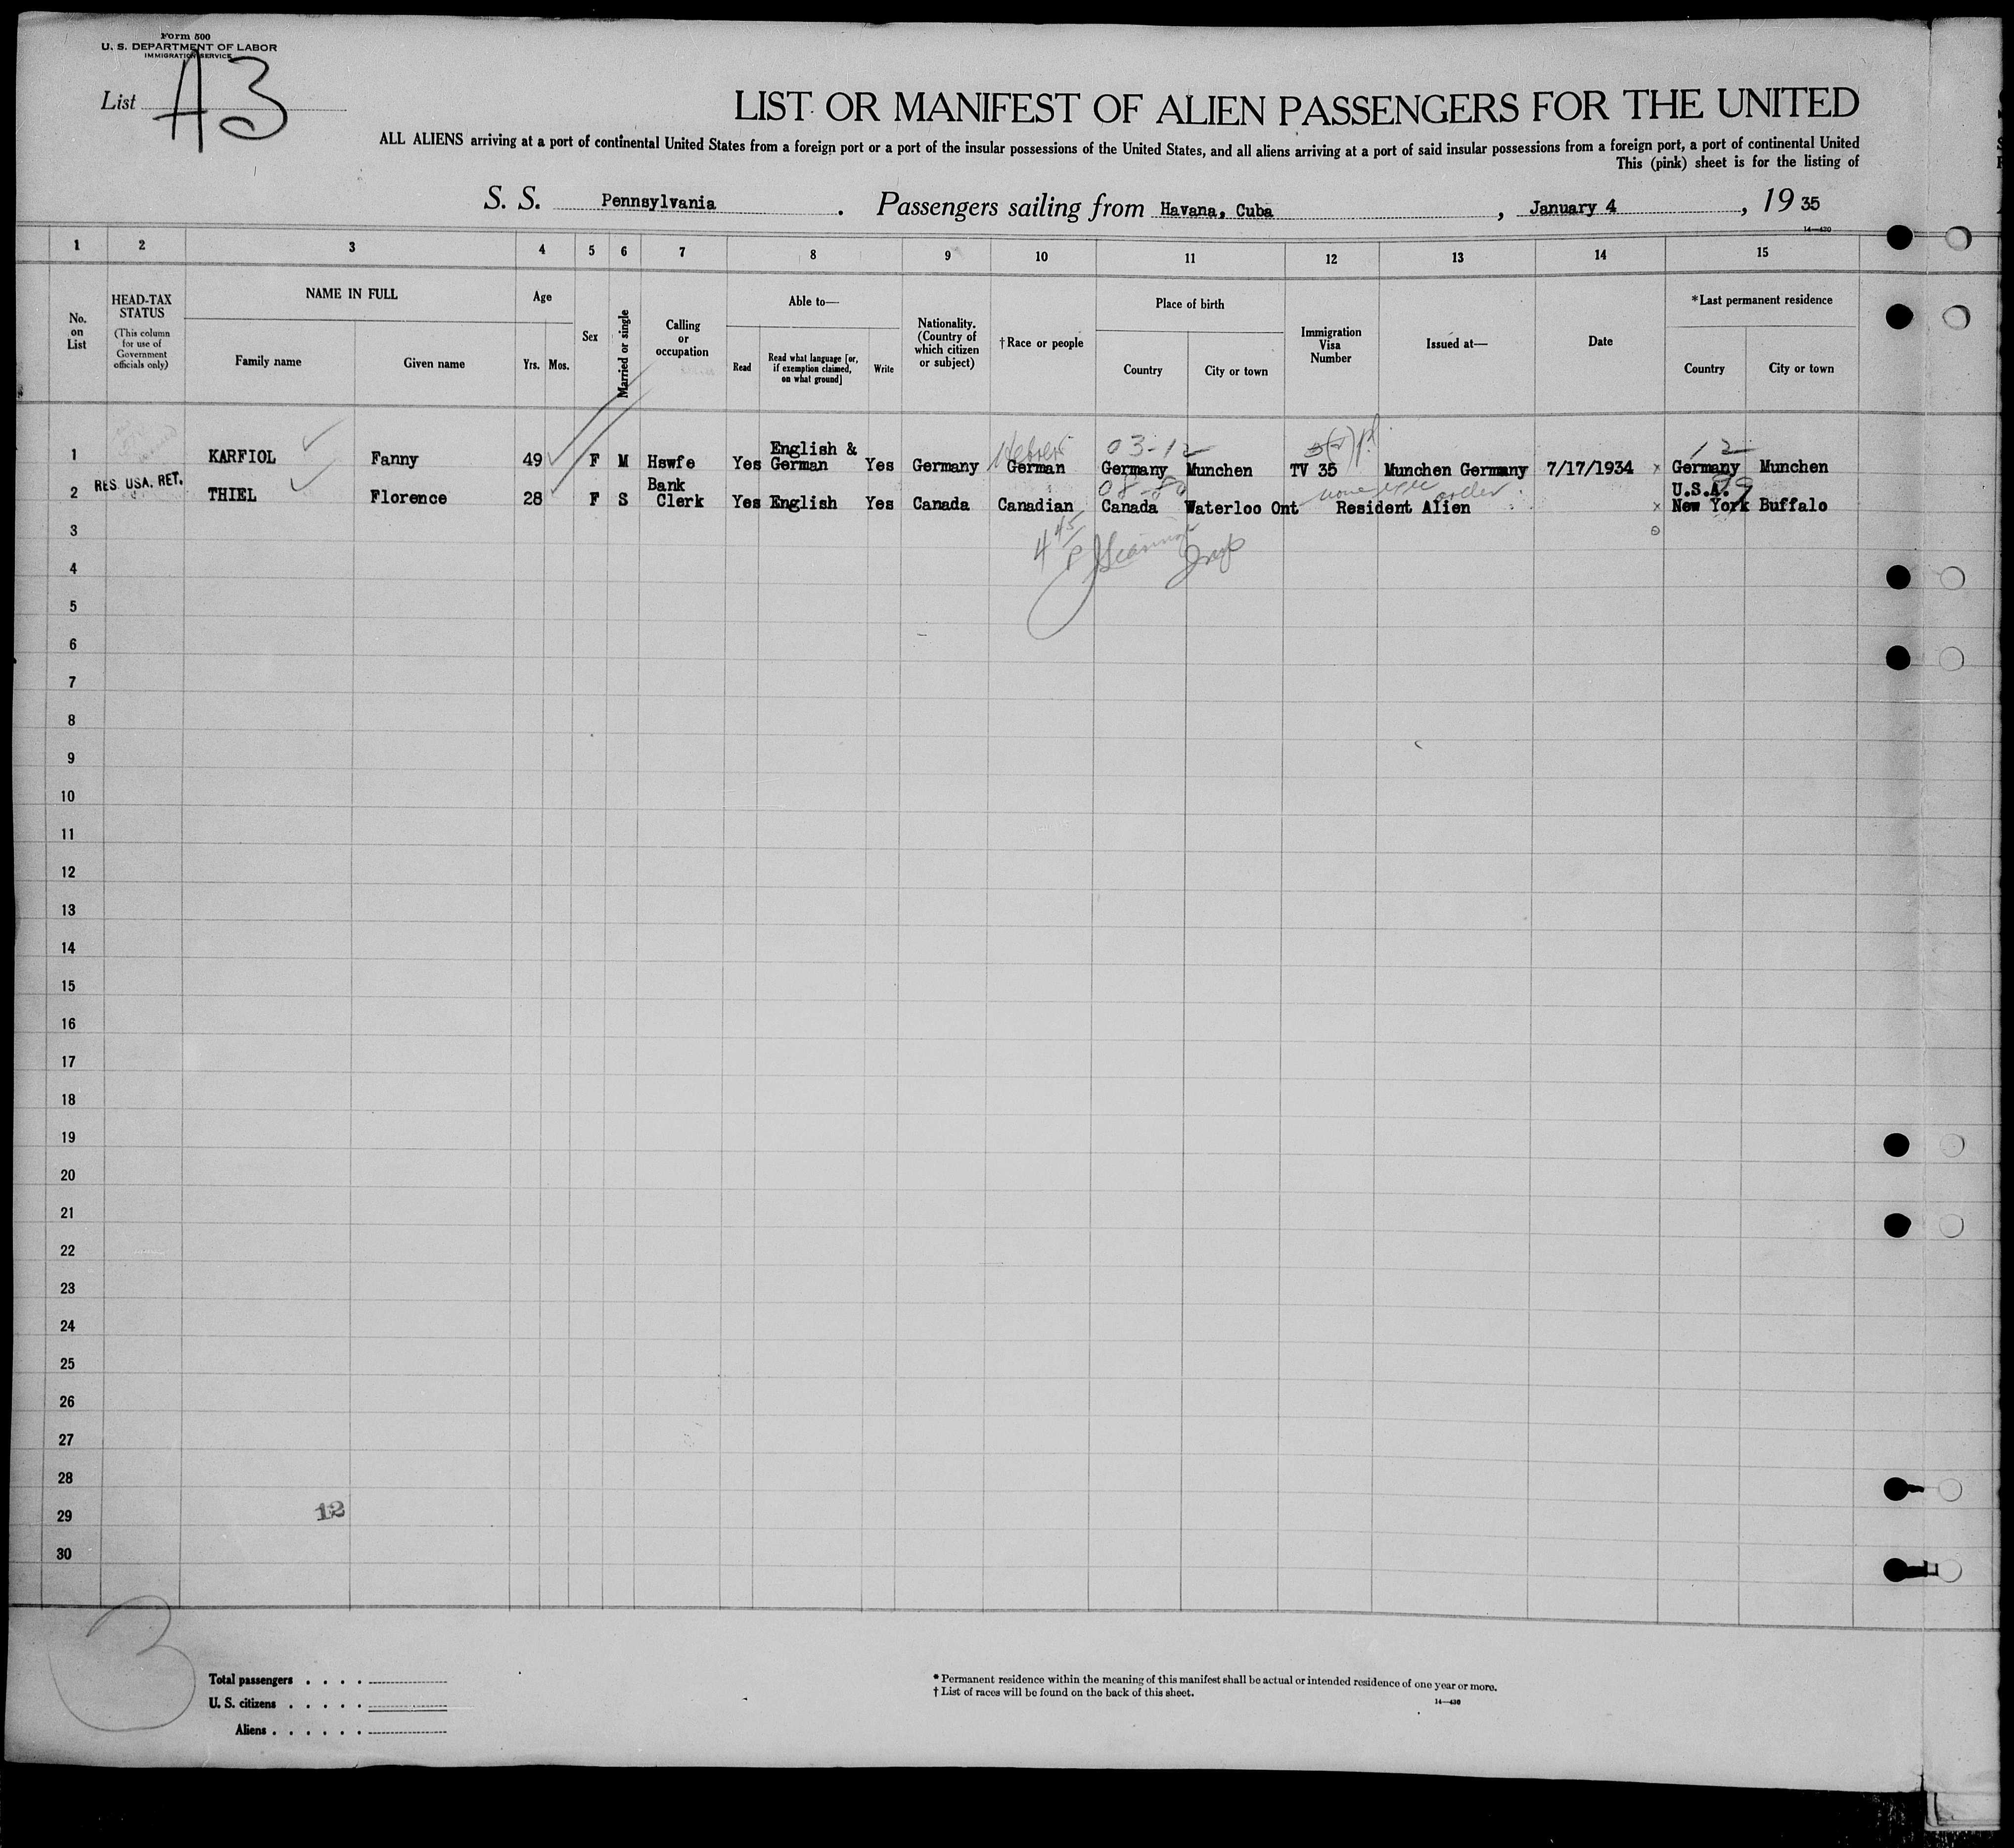 Form 500
U. S. DEPARTMENT OF LABOR
IMMIGRATION SERVICE
List A3
LIST OR MANIFEST OF ALIEN PASSENGERS FOR THE UNITED
ALL ALIENS arriving at a port of continental United States from a foreign port or a port of the insular possessions of the United States, and all aliens arriving at a port of said insular possessions from a foreign port, a port of continental United
This (pink) sheet is for the listing of
S. S. Pennsylvania . Passengers sailing from Havana, Cuba , January 4 , 19 35
14—430
1 2 3 4 5 6 7 8 9 10 11 12 13 14 15
No. on List
HEAD-TAX STATUS
(This column for use of Government officials only)
NAME IN FULL
Family name Given name
Age
Yrs. Mos.
Sex
Married or single
Calling or occupation
Able to—
Read
Read what language [or, if exemption claimed, on what ground]
Write
Nationality. (Country of which citizen or subject)
†Race or people
Place of birth
Country City or town
Immigration Visa Number
Issued at—
Date
*Last permanent residence
Country City or town
Hebrew 03-12 12
1 KARFIOL Fanny 49 F M Hswfe Yes English & German Yes Germany German Germany Munchen TV 35 Munchen Germany 7/17/1934 x Germany Munchen
RES. USA. RET.
08-80 99
2 THIEL Florence 28 F S Bank Clerk Yes English Yes Canada Canadian Canada Waterloo Ont Resident Alien x U.S.A. New York Buffalo
3
4
5
6
7
8
9
10
11
12
13
14
15
16
17
18
19
20
21
22
23
24
25
26
27
28
29 12
30
3
Total passengers . . . .
U. S. citizens . . . . .
Aliens . . . . . .
* Permanent residence within the meaning of this manifest shall be actual or intended residence of one year or more.
† List of races will be found on the back of this sheet.
14—430